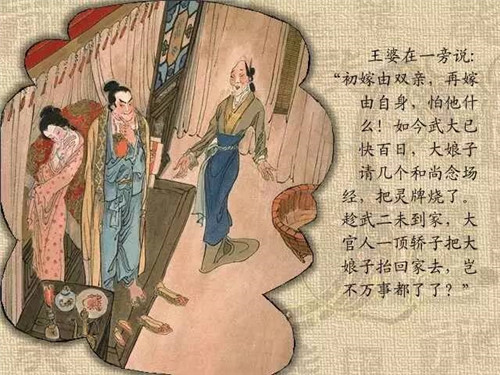 王婆在一旁说：
“初嫁由双亲，再嫁
由自身，怕他什
么！如今武大已
快百日，大娘子
请几个和尚念场
经，把灵牌烧了。
趁武二未到家，大
官人一顶轿子把大
娘子抬回家去，岂
不万事都了了？”